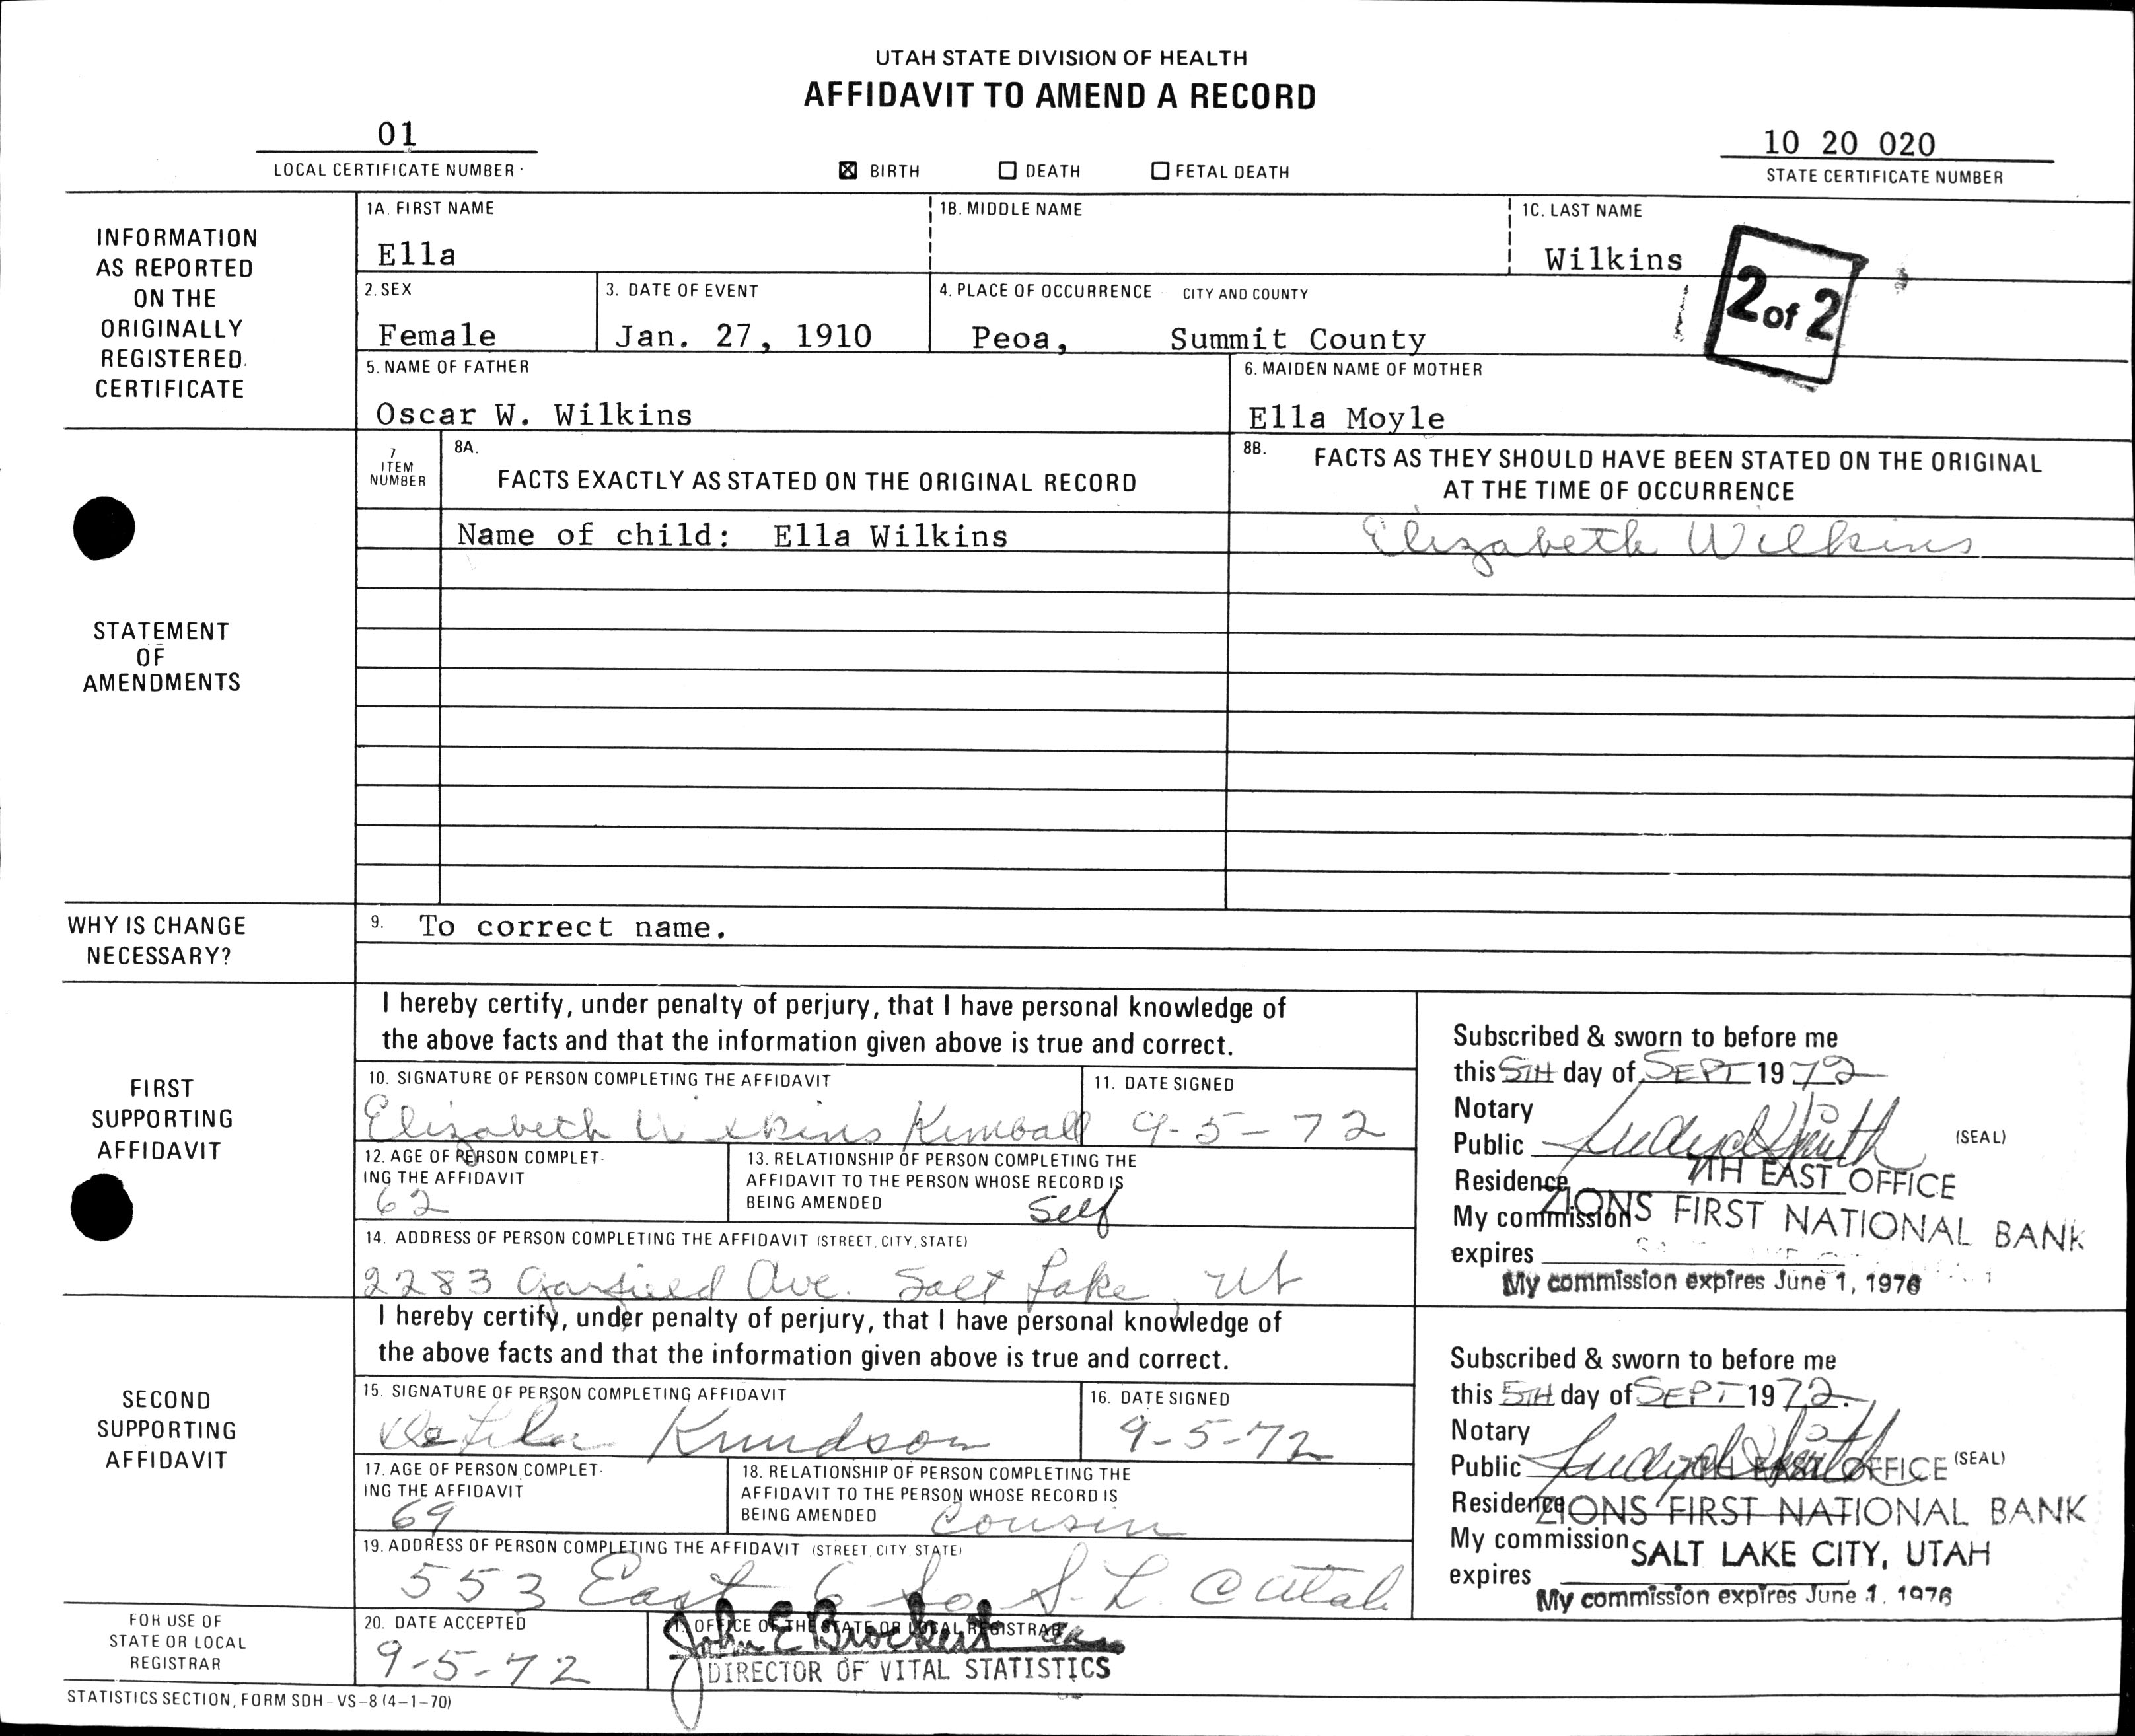 UTAH STATE DIVISION OF HEALTH
AFFIDAVIT TO AMEND A RECORD
01
LOCAL CERTIFICATE NUMBER
☒ BIRTH ☐ DEATH ☐ FETAL DEATH
10 20 020
STATE CERTIFICATE NUMBER
INFORMATION
AS REPORTED
ON THE
ORIGINALLY
REGISTERED
CERTIFICATE
1A. FIRST NAME
Ella
1B. MIDDLE NAME
1C. LAST NAME
Wilkins
2 of 2
2. SEX
Female
3. DATE OF EVENT
Jan. 27, 1910
4. PLACE OF OCCURRENCE CITY AND COUNTY
Peoa, Summit County
5. NAME OF FATHER
Oscar W. Wilkins
6. MAIDEN NAME OF MOTHER
Ella Moyle
STATEMENT
OF
AMENDMENTS
7
ITEM
NUMBER
8A.
FACTS EXACTLY AS STATED ON THE ORIGINAL RECORD
8B.
FACTS AS THEY SHOULD HAVE BEEN STATED ON THE ORIGINAL
AT THE TIME OF OCCURRENCE
Name of child: Ella Wilkins
Elizabeth Wilkins
WHY IS CHANGE
NECESSARY?
9. To correct name.
FIRST
SUPPORTING
AFFIDAVIT
I hereby certify, under penalty of perjury, that I have personal knowledge of
the above facts and that the information given above is true and correct.
10. SIGNATURE OF PERSON COMPLETING THE AFFIDAVIT
Elizabeth Wilkins Kimball
11. DATE SIGNED
9-5-72
12. AGE OF PERSON COMPLET-
ING THE AFFIDAVIT
62
13. RELATIONSHIP OF PERSON COMPLETING THE
AFFIDAVIT TO THE PERSON WHOSE RECORD IS
BEING AMENDED Self
14. ADDRESS OF PERSON COMPLETING THE AFFIDAVIT (STREET, CITY, STATE)
2283 Garfield Ave. Salt Lake, Ut
Subscribed & sworn to before me
this 5TH day of SEPT 1972
Notary
Public (SEAL)
7TH EAST OFFICE
Residence
ZIONS FIRST NATIONAL BANK
My commission
expires
My commission expires June 1, 1976
SECOND
SUPPORTING
AFFIDAVIT
I hereby certify, under penalty of perjury, that I have personal knowledge of
the above facts and that the information given above is true and correct.
15. SIGNATURE OF PERSON COMPLETING AFFIDAVIT
Knudson
16. DATE SIGNED
9-5-72
17. AGE OF PERSON COMPLET-
ING THE AFFIDAVIT
69
18. RELATIONSHIP OF PERSON COMPLETING THE
AFFIDAVIT TO THE PERSON WHOSE RECORD IS
BEING AMENDED Cousin
19. ADDRESS OF PERSON COMPLETING THE AFFIDAVIT (STREET, CITY, STATE)
553 East 6 So S. L. C Utah
Subscribed & sworn to before me
this 5TH day of SEPT 1972.
Notary
Public (SEAL)
EAST OFFICE
Residence
ZIONS FIRST NATIONAL BANK
My commission
SALT LAKE CITY, UTAH
expires
My commission expires June 1, 1976
FOR USE OF
STATE OR LOCAL
REGISTRAR
20. DATE ACCEPTED
9-5-72
21. OFFICE OF THE STATE OR LOCAL REGISTRAR
John E Brockert
DIRECTOR OF VITAL STATISTICS
STATISTICS SECTION, FORM SDH-VS-8 (4-1-70)